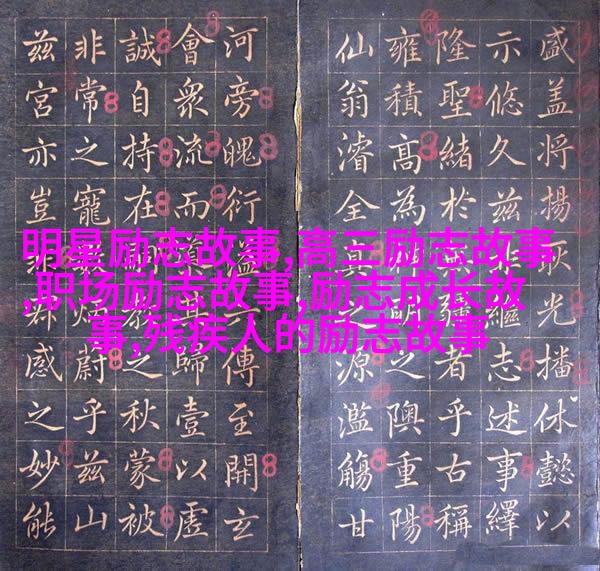 明星励志故事,高三励志故事
,职场励志故事,励志成长故
事,残疾人的励志故事
盛盖將揚耿光播休懿以
示悠久茲繼志述事繹
隆聖緒於疆者乎古稱
雍積高為明之隩重陽
仙翁濬全真之源濫觴甘
河旁魄衍溢傳至開玄
會衆流而歸壹以虛
誠自持在之秋蒙被
非常之寵炳蔚乎茲山
茲宮亦豈群感之妙能